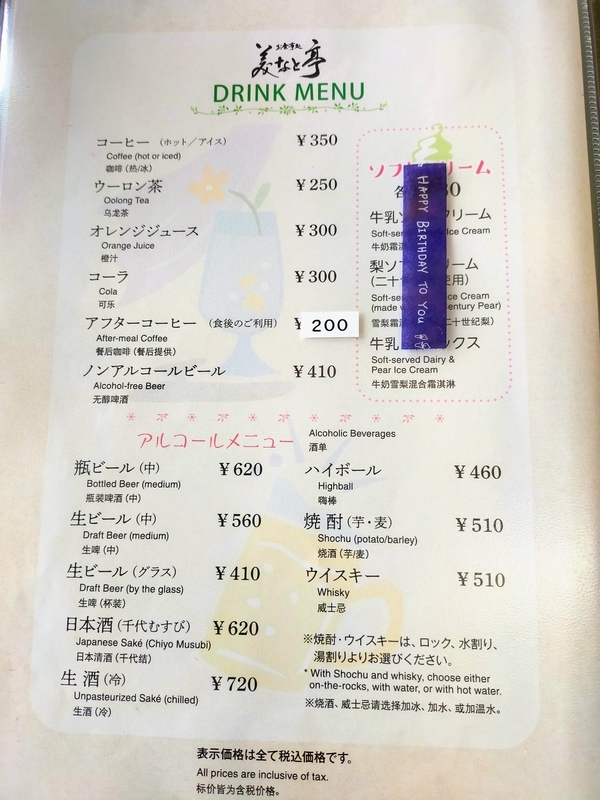 お食事処
美なと亭
DRINK MENU
コーヒー (ホット/アイス) ¥350
Coffee (hot or iced)
咖啡 (热/冰)
ウーロン茶 ¥250
Oolong Tea
乌龙茶
オレンジジュース ¥300
Orange Juice
橙汁
コーラ ¥300
Cola
可乐
アフターコーヒー (食後のご利用) ¥ 200
After-meal Coffee
餐后咖啡 (餐后提供)
ノンアルコールビール ¥410
Alcohol-free Beer
无醇啤酒
ソフ リーム
各 30
牛乳ソ クリーム
Soft-ser Ice Cream
牛奶霜
梨ソフ ーム
(二十 使用)
Soft-se Ice Cream
(made w entury Pear)
雪梨霜 二十世纪梨)
牛乳 ックス
Soft-served Dairy &
Pear Ice Cream
牛奶雪梨混合霜淇淋
HAPPY BIRTHDAY TO YOU
アルコールメニュー
Alcoholic Beverages
酒单
瓶ビール (中) ¥620
Bottled Beer (medium)
瓶装啤酒 (中)
生ビール (中) ¥560
Draft Beer (medium)
生啤 (中)
生ビール (グラス) ¥410
Draft Beer (by the glass)
生啤 (杯装)
日本酒 (千代むすび) ¥620
Japanese Saké (Chiyo Musubi)
日本清酒 (千代结)
生 酒 (冷) ¥720
Unpasteurized Saké (chilled)
生酒 (冷)
ハイボール ¥460
Highball
嗨棒
焼 酎 (芋・麦) ¥510
Shochu (potato/barley)
烧酒 (芋/麦)
ウイスキー ¥510
Whisky
威士忌
※焼酎・ウイスキーは、ロック、水割り、
湯割りよりお選びください。
* With Shochu and whisky, choose either
on-the-rocks, with water, or with hot water.
※烧酒、威士忌请选择加冰、加水、或加温水。
表示価格は全て税込価格です。
All prices are inclusive of tax.
标价皆为含税价格。